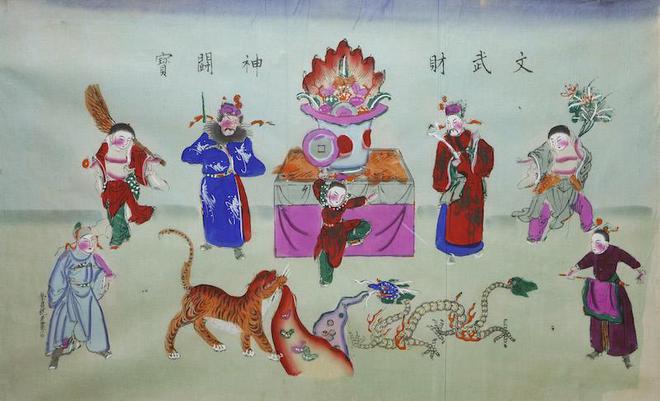 文武財神鬪寳